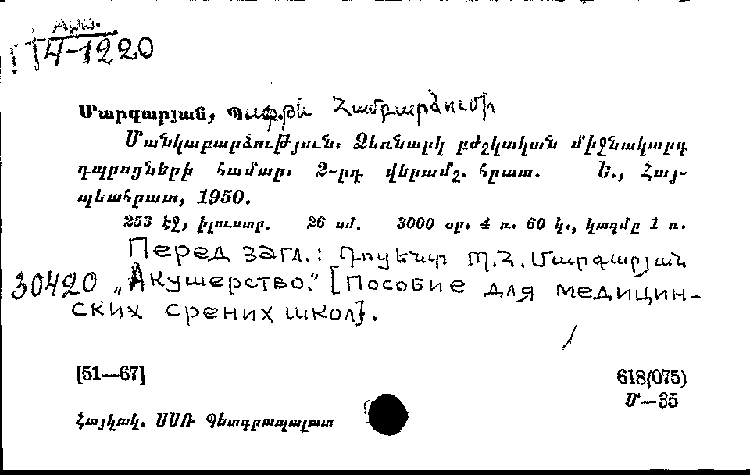 Арм.
Г4-1220
Մարգարյան, Պարթև Համբարձումի
Մանկաբարձություն. Ձեռնարկ բժշկական միջնակարգ
դպրոցների համար. 2-րդ վերամշ. հրատ. Ե., Հայ-
պետհրատ, 1950.
253 էջ, իլուստր. 26 սմ. 3000 օր. 4 ռ. 60 կ., կազմը 1 ռ.
Перед загл.: Դոցենտ Պ.Հ. Մարգարյան
30420 „Акушерство." [Пособие для медицин-
ских срених школ].
[51—67]
618(075)
Մ—35
Հայկակ. ՍՍՌ Պետգրապալատ